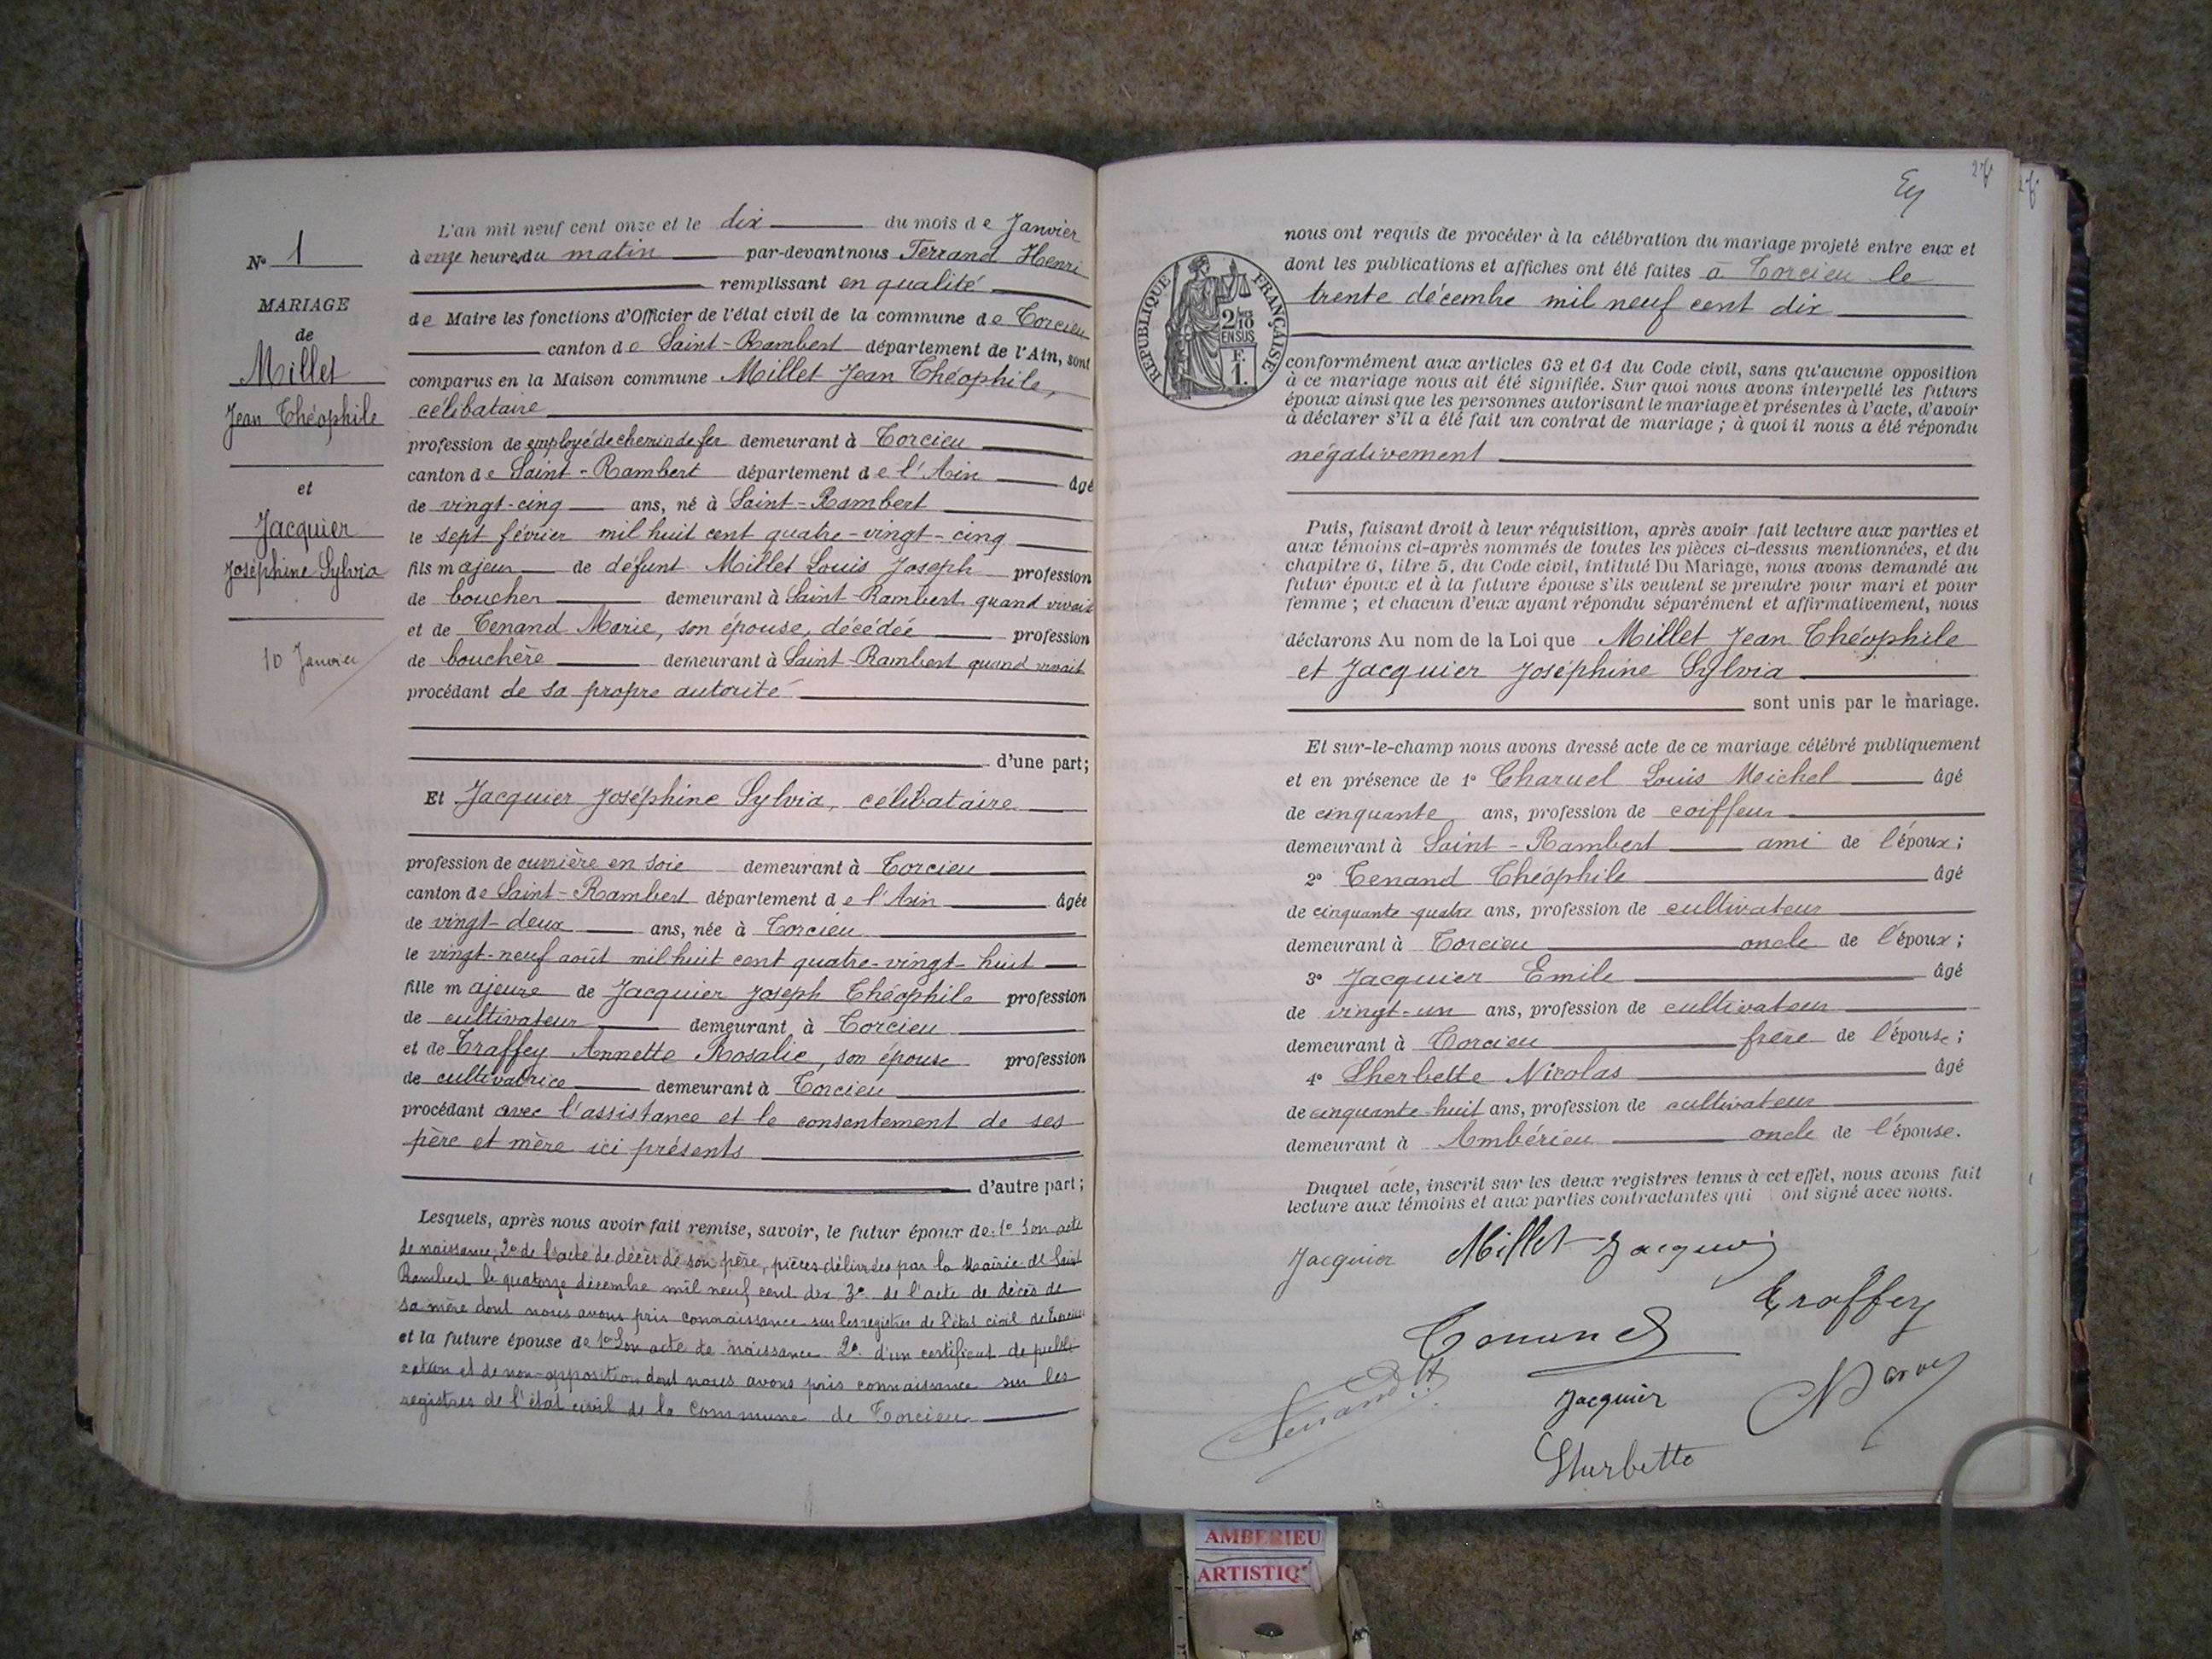 N° 1
MARIAGE
de
Millet
Jean Théophile
et
Jacquier
Joséphine Sylvia
10 Janvier
L'an mil neuf cent onze et le dix du mois de Janvier
à onze heures du matin par-devant nous Ferrand Henri
remplissant en qualité
de Maire les fonctions d'Officier de l'état civil de la commune de Torcieu
canton de Saint-Rambert département de l'Ain, sont
comparus en la Maison commune Millet Jean Théophile,
célibataire
profession de employé de chemin de fer demeurant à Torcieu
canton de Saint-Rambert département de l'Ain âgé
de vingt-cinq ans, né à Saint-Rambert
le sept février mil huit cent quatre-vingt-cinq
fils majeur de défunt Millet Louis Joseph profession
de boucher demeurant à Saint-Rambert quand vivait
et de Tenand Marie, son épouse, décédée profession
de bouchère demeurant à Saint-Rambert quand vivait
procédant de sa propre autorité
d'une part;
Et Jacquier Joséphine Sylvia, célibataire
profession de ouvrière en soie demeurant à Torcieu
canton de Saint-Rambert département de l'Ain âgée
de vingt-deux ans, née à Torcieu
le vingt-neuf août mil huit cent quatre-vingt-huit
fille majeure de Jacquier Joseph Théophile profession
de cultivateur demeurant à Torcieu
et de Traffey Annette Rosalie, son épouse profession
de cultivatrice demeurant à Torcieu
procédant avec l'assistance et le consentement de ses
père et mère ici présents
d'autre part;
Lesquels, après nous avoir fait remise, savoir, le futur époux de: 1° Son acte
de naissance, 2° de l'acte de décès de son père, pièces délivrées par la Mairie de Saint
Rambert le quatorze décembre mil neuf cent dix 3° de l'acte de décès de
sa mère dont nous avons pris connaissance sur les registres de l'état civil de Torcieu
et la future épouse de 1° Son acte de naissance 2° d'un certificat de publi
cation et de non-opposition dont nous avons pris connaissance sur les
registres de l'état civil de la commune de Torcieu
27
nous ont requis de procéder à la célébration du mariage projeté entre eux et
dont les publications et affiches ont été faites à Torcieu le
trente décembre mil neuf cent dix
RÉPUBLIQUE FRANÇAISE
2/10
EN SUS
F.
1.
conformément aux articles 63 et 64 du Code civil, sans qu'aucune opposition
à ce mariage nous ait été signifiée. Sur quoi nous avons interpellé les futurs
époux ainsi que les personnes autorisant le mariage et présentes à l'acte, d'avoir
à déclarer s'il a été fait un contrat de mariage; à quoi il nous a été répondu
négativement
Puis, faisant droit à leur réquisition, après avoir fait lecture aux parties et
aux témoins ci-après nommés de toutes les pièces ci-dessus mentionnées, et du
chapitre 6, titre 5, du Code civil, intitulé Du Mariage, nous avons demandé au
futur époux et à la future épouse s'ils veulent se prendre pour mari et pour
femme; et chacun d'eux ayant répondu séparément et affirmativement, nous
déclarons Au nom de la Loi que Millet Jean Théophile
et Jacquier Joséphine Sylvia
sont unis par le mariage.
Et sur-le-champ nous avons dressé acte de ce mariage célébré publiquement
et en présence de 1° Charuel Louis Michel âgé
de cinquante ans, profession de coiffeur
demeurant à Saint-Rambert ami de l'époux;
2° Tenand Théophile âgé
de cinquante-quatre ans, profession de cultivateur
demeurant à Torcieu oncle de l'époux;
3° Jacquier Emile âgé
de vingt-un ans, profession de cultivateur
demeurant à Torcieu frère de l'épouse;
4° Sherbette Nicolas âgé
de cinquante-huit ans, profession de cultivateur
demeurant à Ambérieu oncle de l'épouse.
Duquel acte, inscrit sur les deux registres tenus à cet effet, nous avons fait
lecture aux témoins et aux parties contractantes qui ont signé avec nous.
Jacquier Millet Jacquier
Traffey
Jacquier
Sherbette
AMBERIEU
ARTISTIQ'